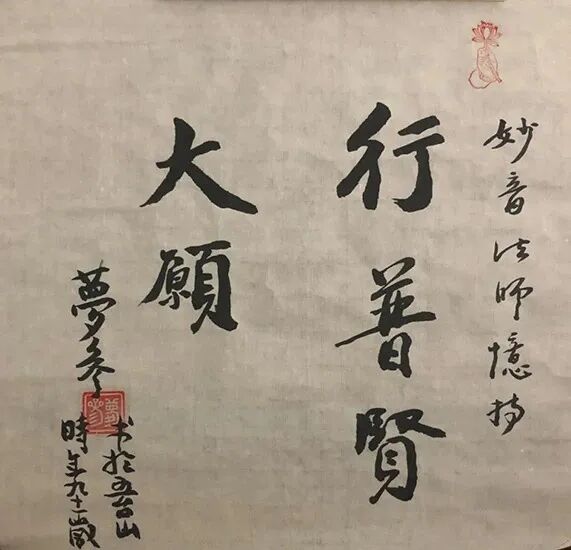 妙音法师憶持
行普賢
大願
夢参
书於五台山
時年九十一歲